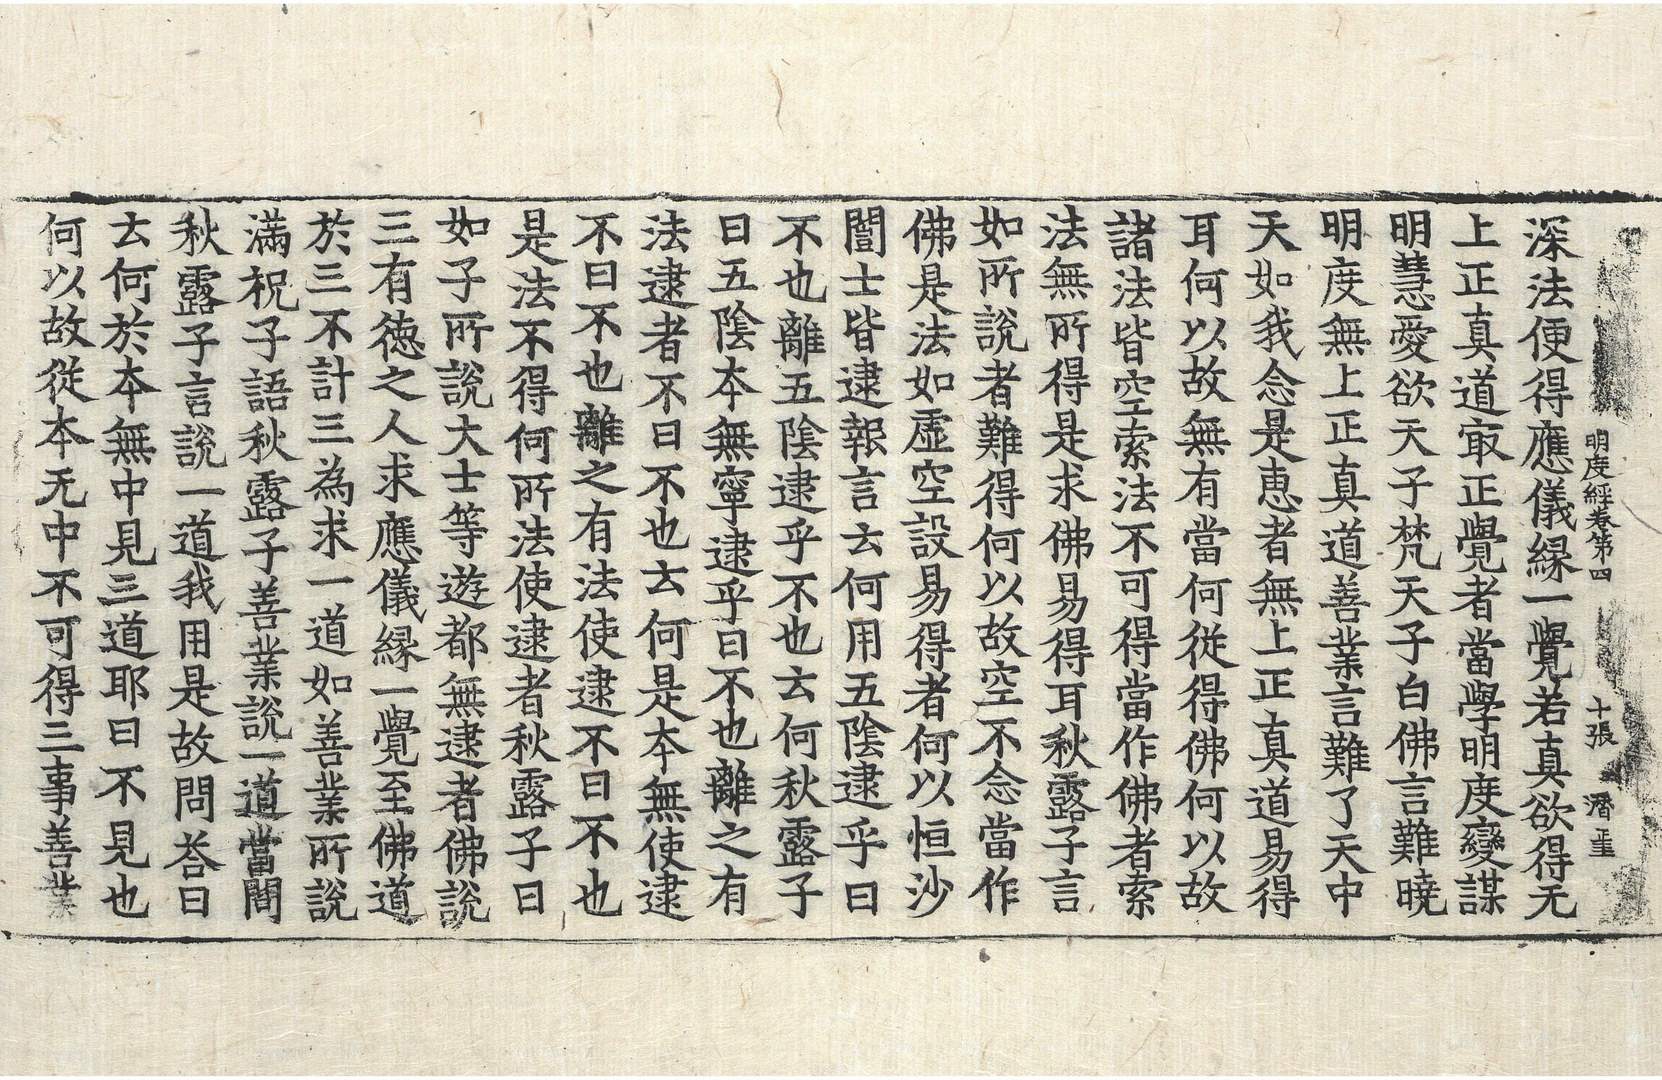 明度經卷第四　十張　潛垂
深法便得應儀緣一覺若真欲得无
上正真道㝡正覺者當學明度變謀
明慧愛欲天子梵天子白佛言難曉
明度無上正真道善業言難了天中
天如我念是惠者無上正真道易得
耳何以故無有當何從得佛何以故
諸法皆空索法不可得當作佛者索
法無所得是求佛易得耳秋露子言
如所說者難得何以故空不念當作
佛是法如虛空設易得者何以恒沙
闓士皆逮報言云何用五陰逮乎曰
不也離五陰逮乎不也云何秋露子
曰五陰本無寧逮乎曰不也離之有
法逮者不曰不也云何是本無使逮
不曰不也離之有法使逮不曰不也
是法不得何所法使逮者秋露子曰
如子所說大士等遊都無逮者佛說
三有德之人求應儀緣一覺至佛道
於三不計三為求一道如善業所說
滿祝子語秋露子善業說一道當問
秋露子言說一道我用是故問荅曰
云何於本無中見三道耶曰不見也
何以故從本无中不可得三事善業